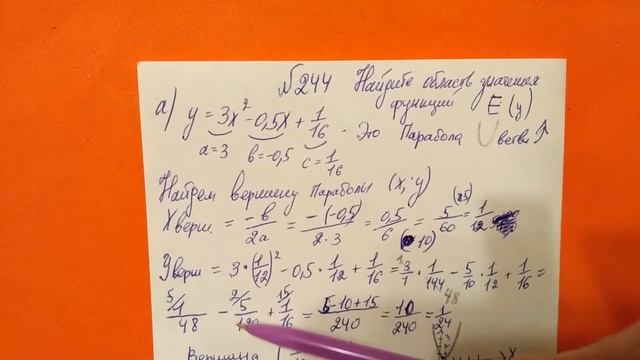 №244 Найдите область значения
функции E(y)
а) y = 3x² - 0,5x + 1/16 - Это Парабола ветви ↑
a=3 b=-0,5 c=1/16
Найдем вершину параболы (x; y)
X верш. = -b/2a = -(-0,5)/2·3 = 0,5/6 (·10) = 5/60 (:5) = 1/12
y верш = 3·(1/12)² - 0,5·1/12 + 1/16 = 3/1·1/144 - 5/10·1/12 + 1/16 =
5/ 1/48 - 2/ 5/120 + 15/ 1/16 = 5-10+15/240 = 10/240 = 1/24
Вершина